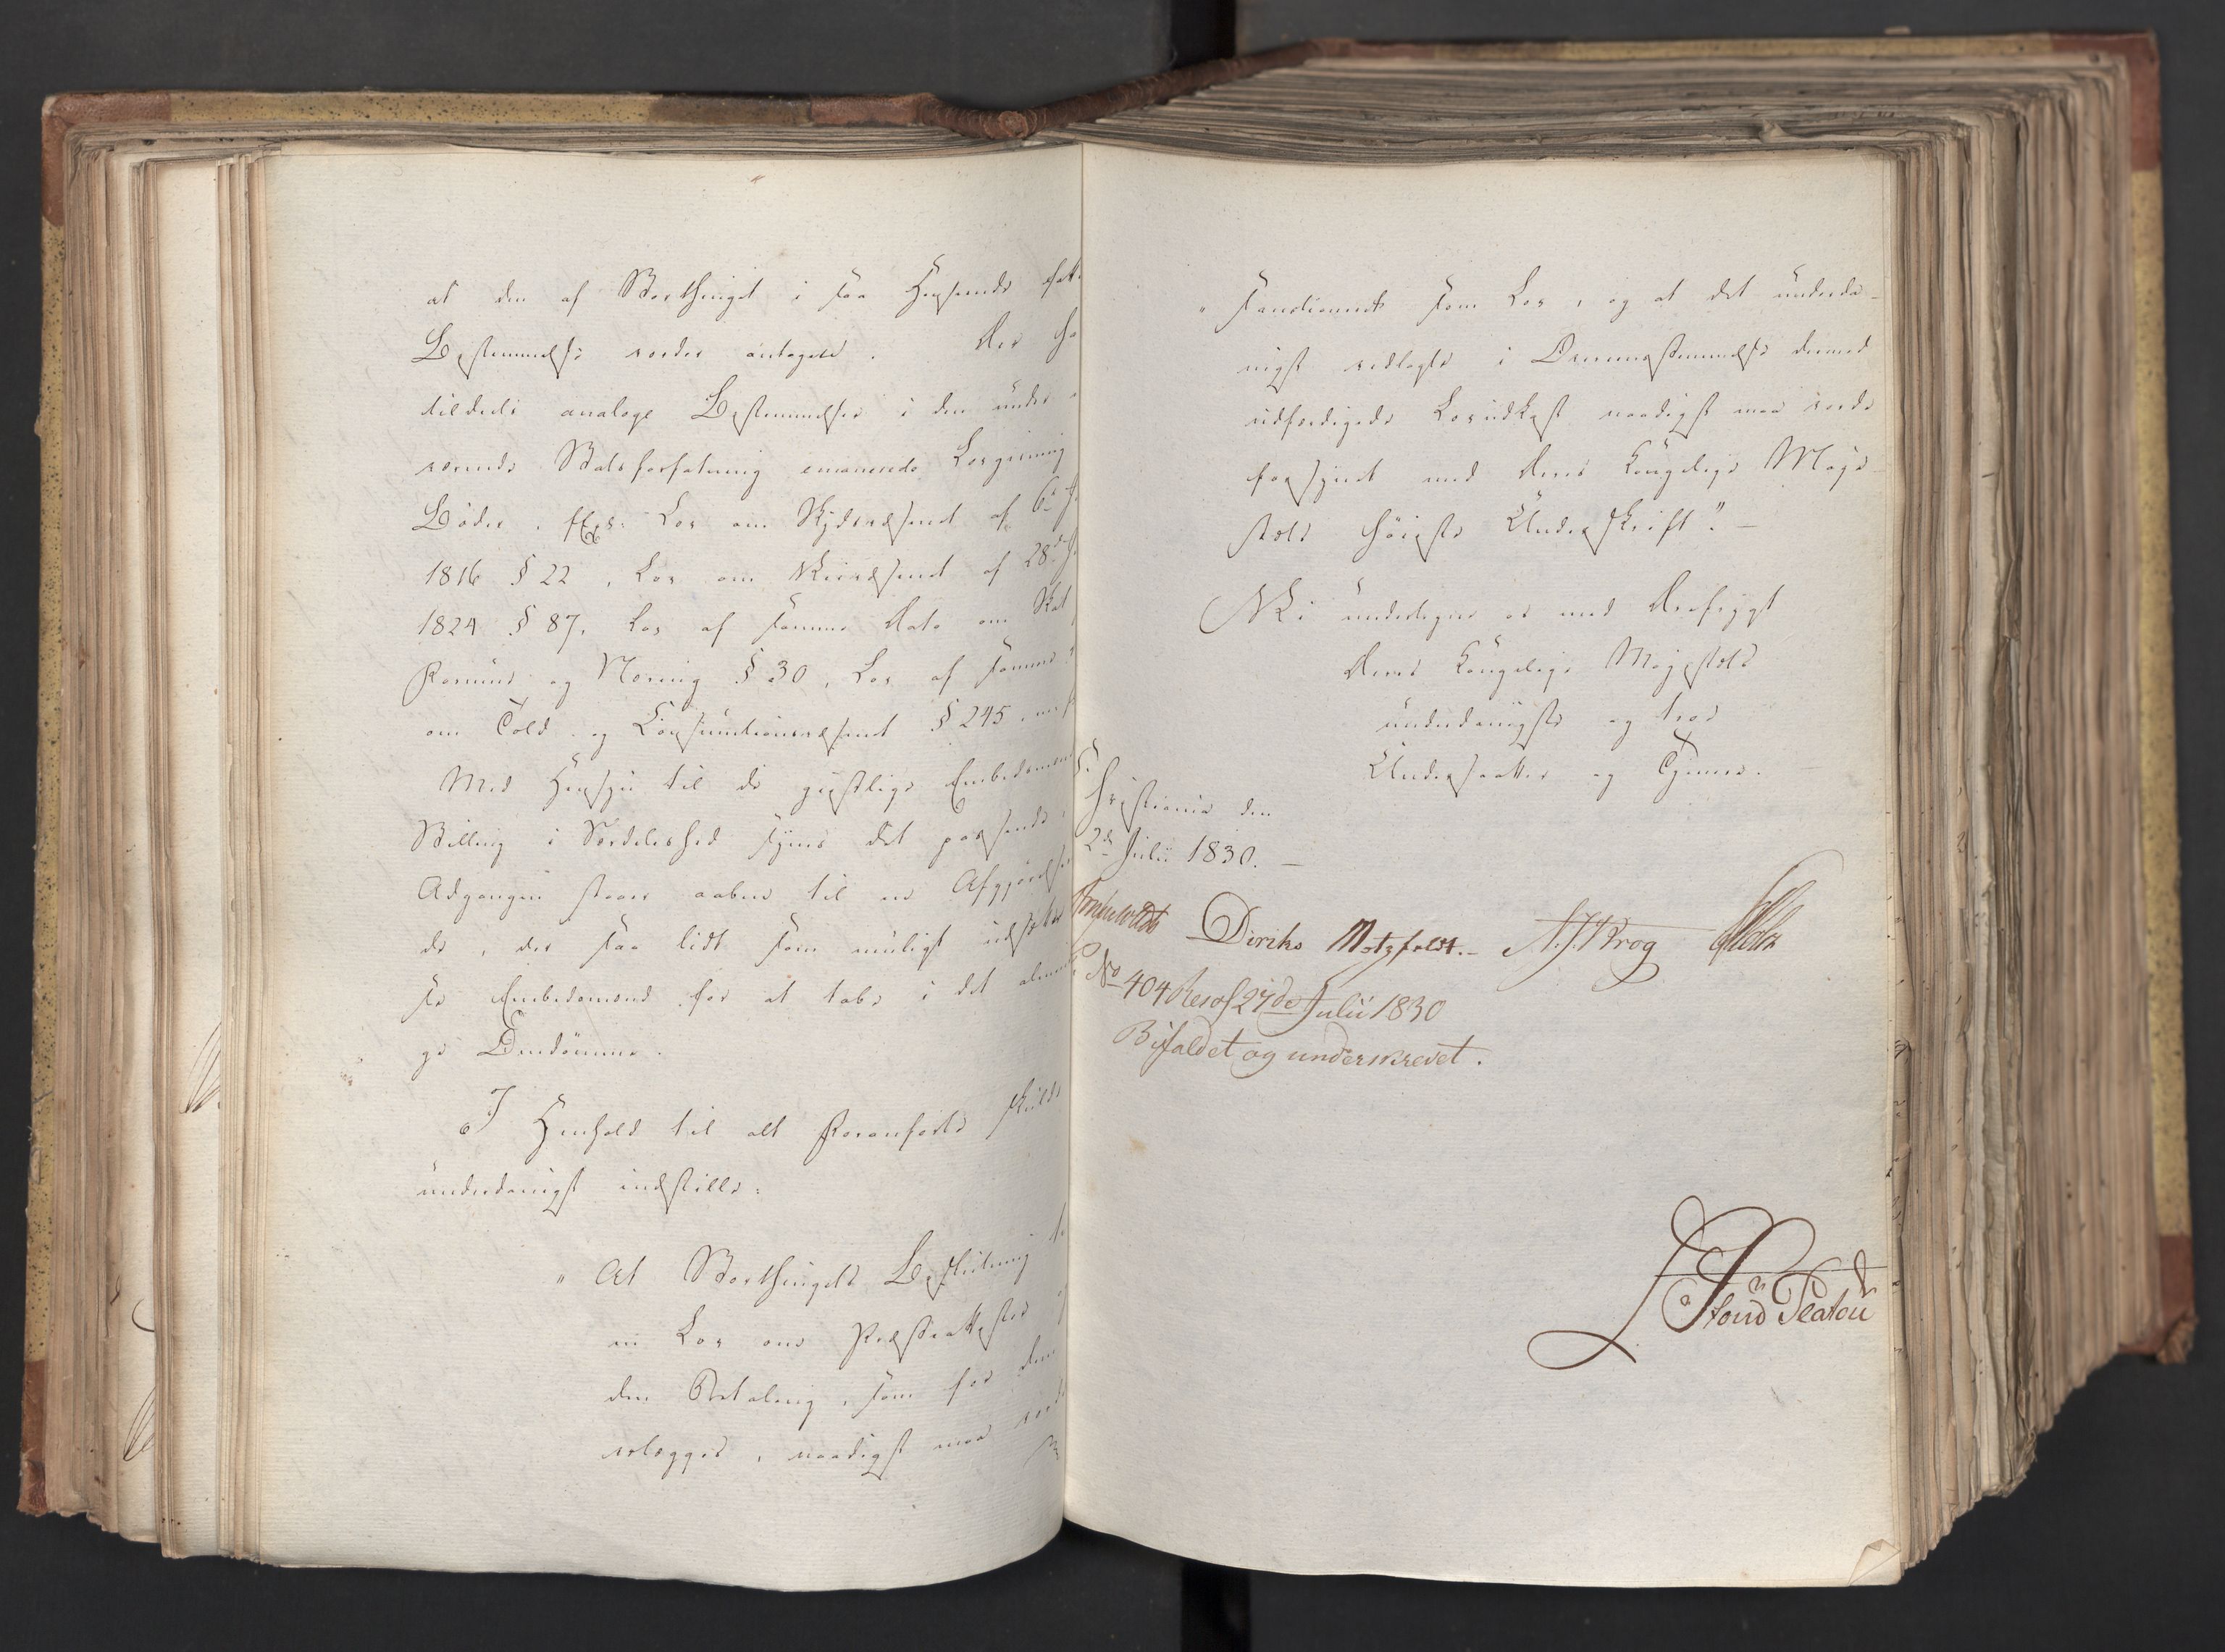 at den af Storthinget i saa Henseende fatt
Bestemmelse vorder antaget. Der ha
tildeels analoge Bestemmelser i den under
værende Statsforfatning emanerede Lovgivning
Bøder, f. Ex: Lov om Skydsvæsenet af 6te
1816 § 22, Lov om Veivæsenet af 28de
1824 § 87, Lov af samme Dato om Skat
Korn og Næring § 30, Lov af samme
om Told og Consumtionsvæsenet § 245,
Med Hensyn til de geistlige Embedsmænd
Stilling i Særdeleshed synes det passende
Adgangen staaer aaben til en Afgjørelse
de, der saa lidt som muligt udsætter
se Embedsmænd for at tabe i det alminde
ge Omdømme.
I Henhold til alt Foranførte skulde
underdanigst indstille:
" At Storthingets Beslutning
en Lov om Præsteattester
den Betaling, som for dem
erlægges, naadigst maa vorde
" sanctioneret som Lov, og at det underda-
nigst vedlagte i Overeensstemmelse dermed
udfærdigede Lovudkast naadigst maa vorde
forsynet med Deres Kongelige Maje-
stæts høieste Underskrift". -
Vi undertegne os med Ærefrygt
Deres Kongelige Majestæts
underdanigste og troe
Undersaatter og Tjenere.
Christiania den
2den Julii 1830. -
Diriks Motzfeldt. - A. J. Krog
No 404 Resol 27de Julii 1830
Bifaldet og underskrevet.
Stoud Platou